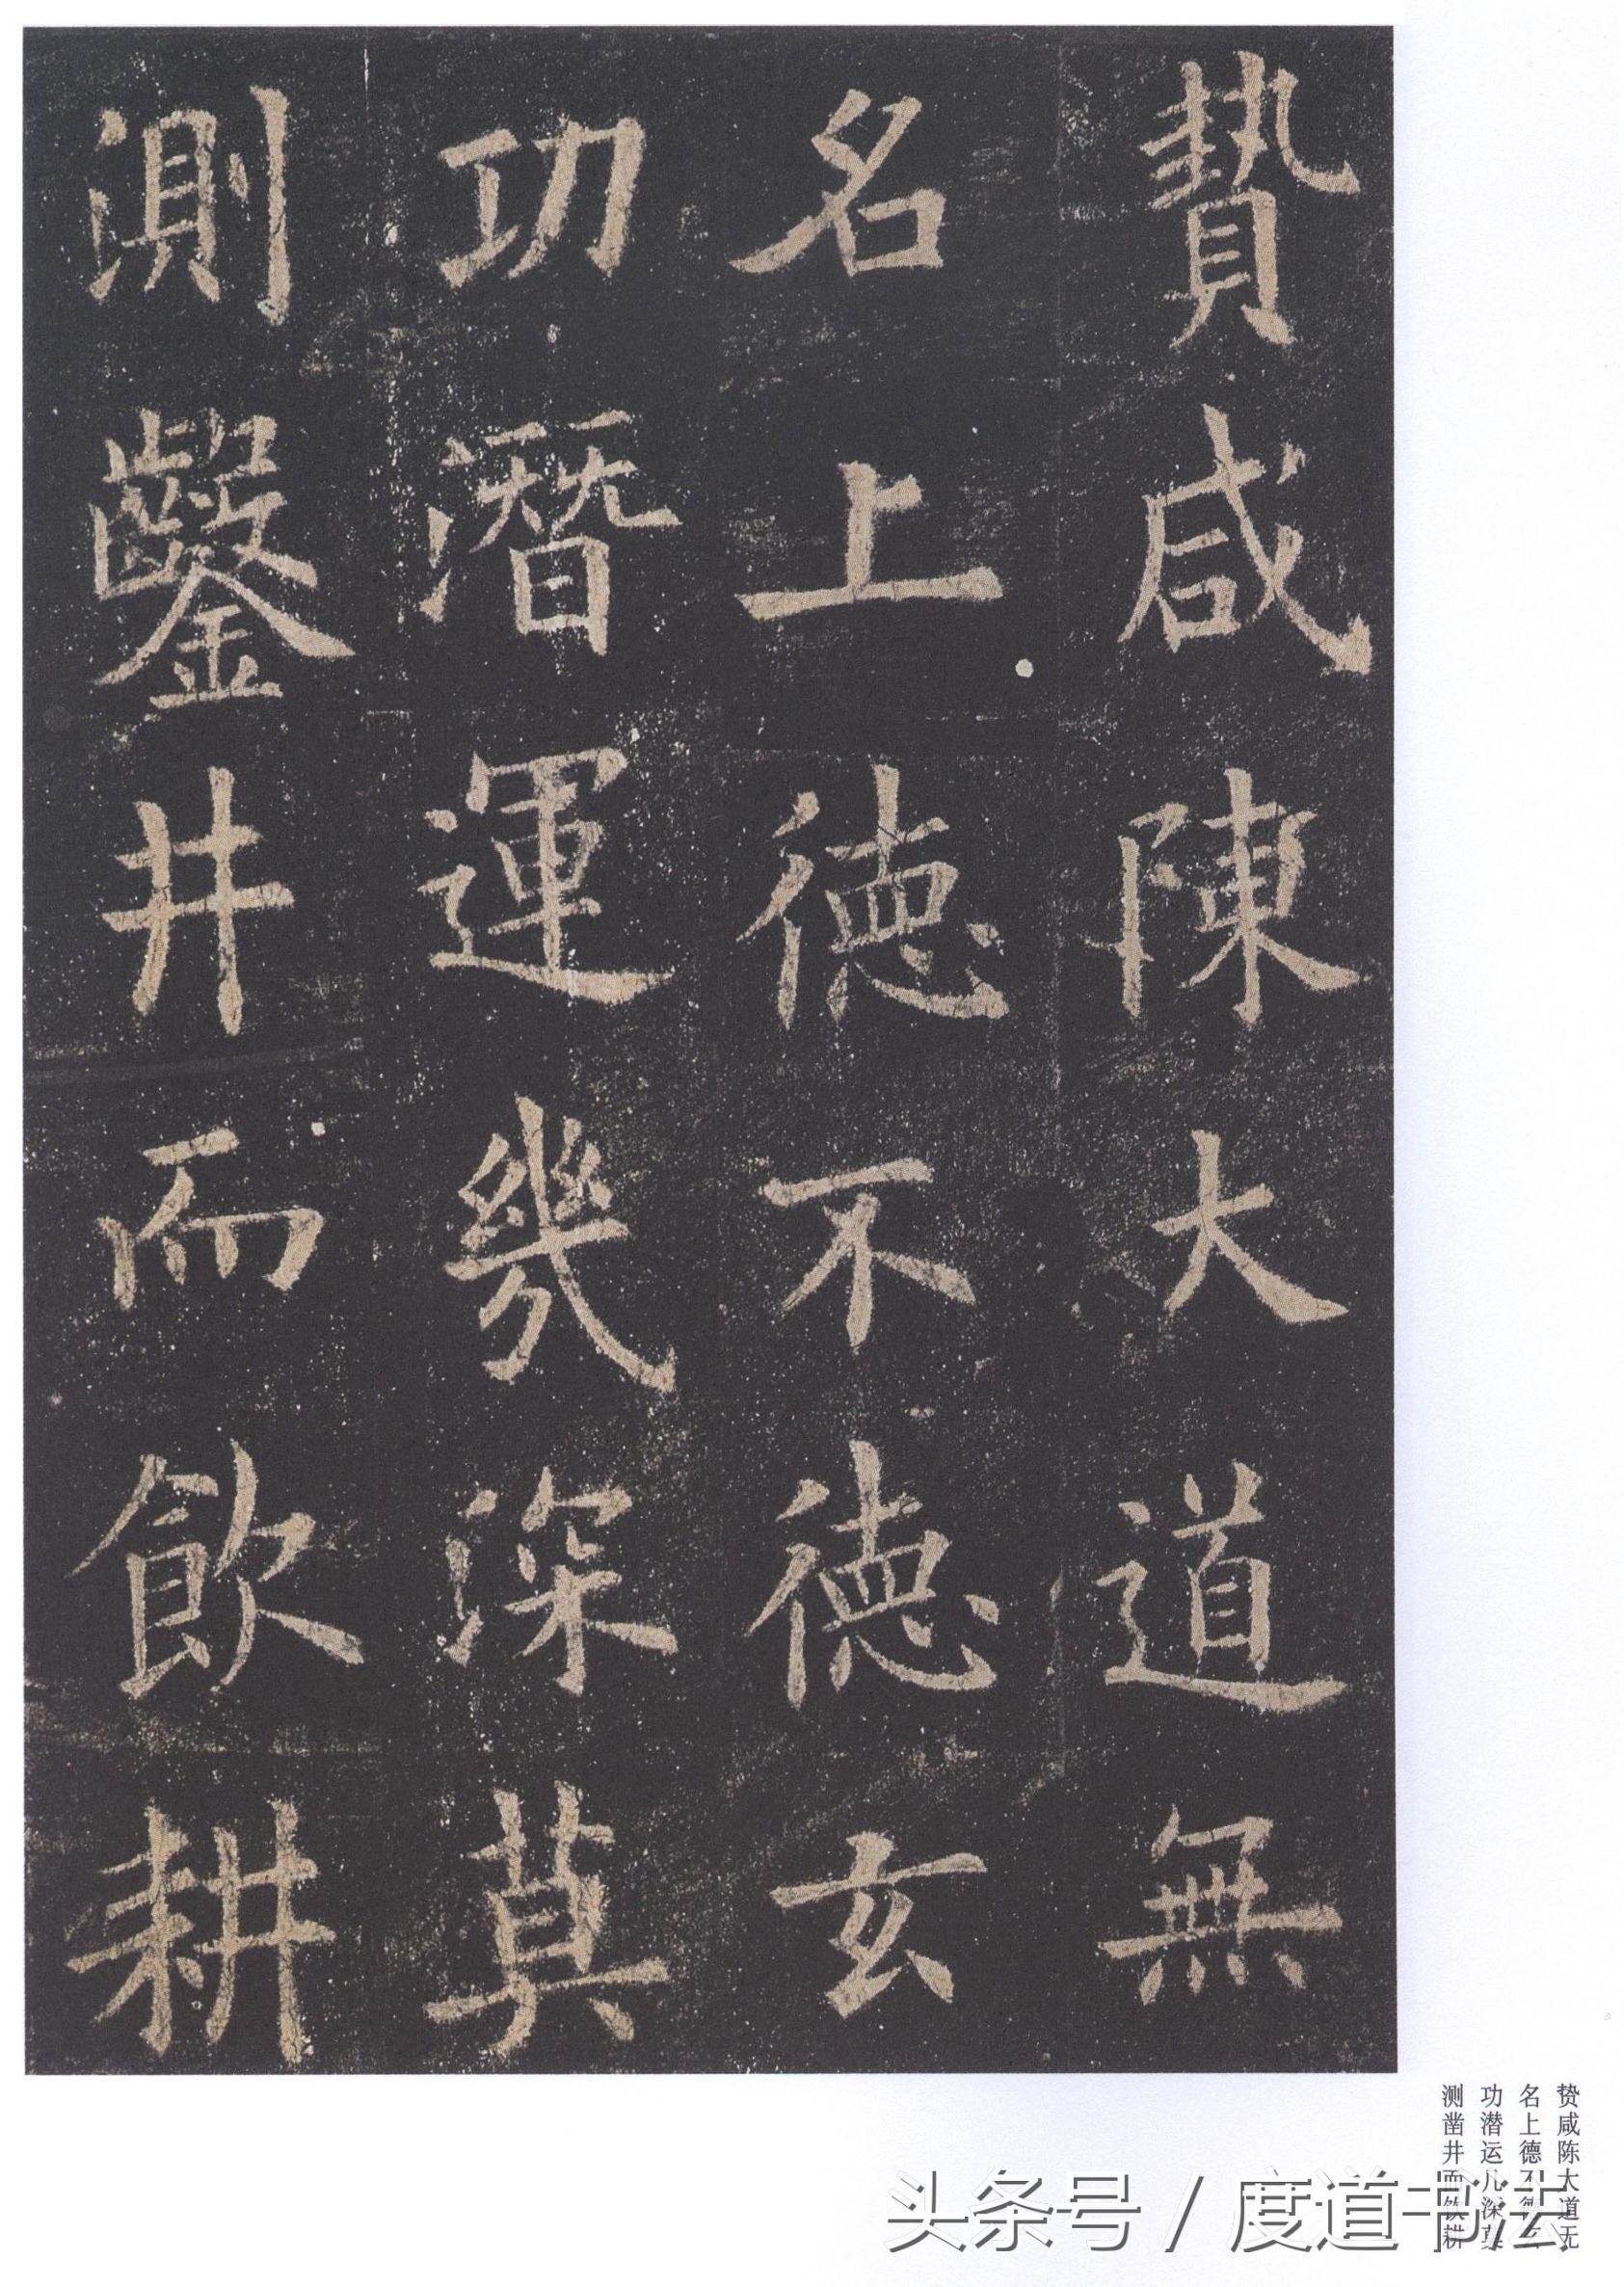 贄咸陳大道無
名上德不德玄
功潛運幾深莫
測鑿井而飲耕
贽咸陈大道无
名上德不德玄
功潜运几深莫
测凿井而饮耕
头条号 / 度道书法